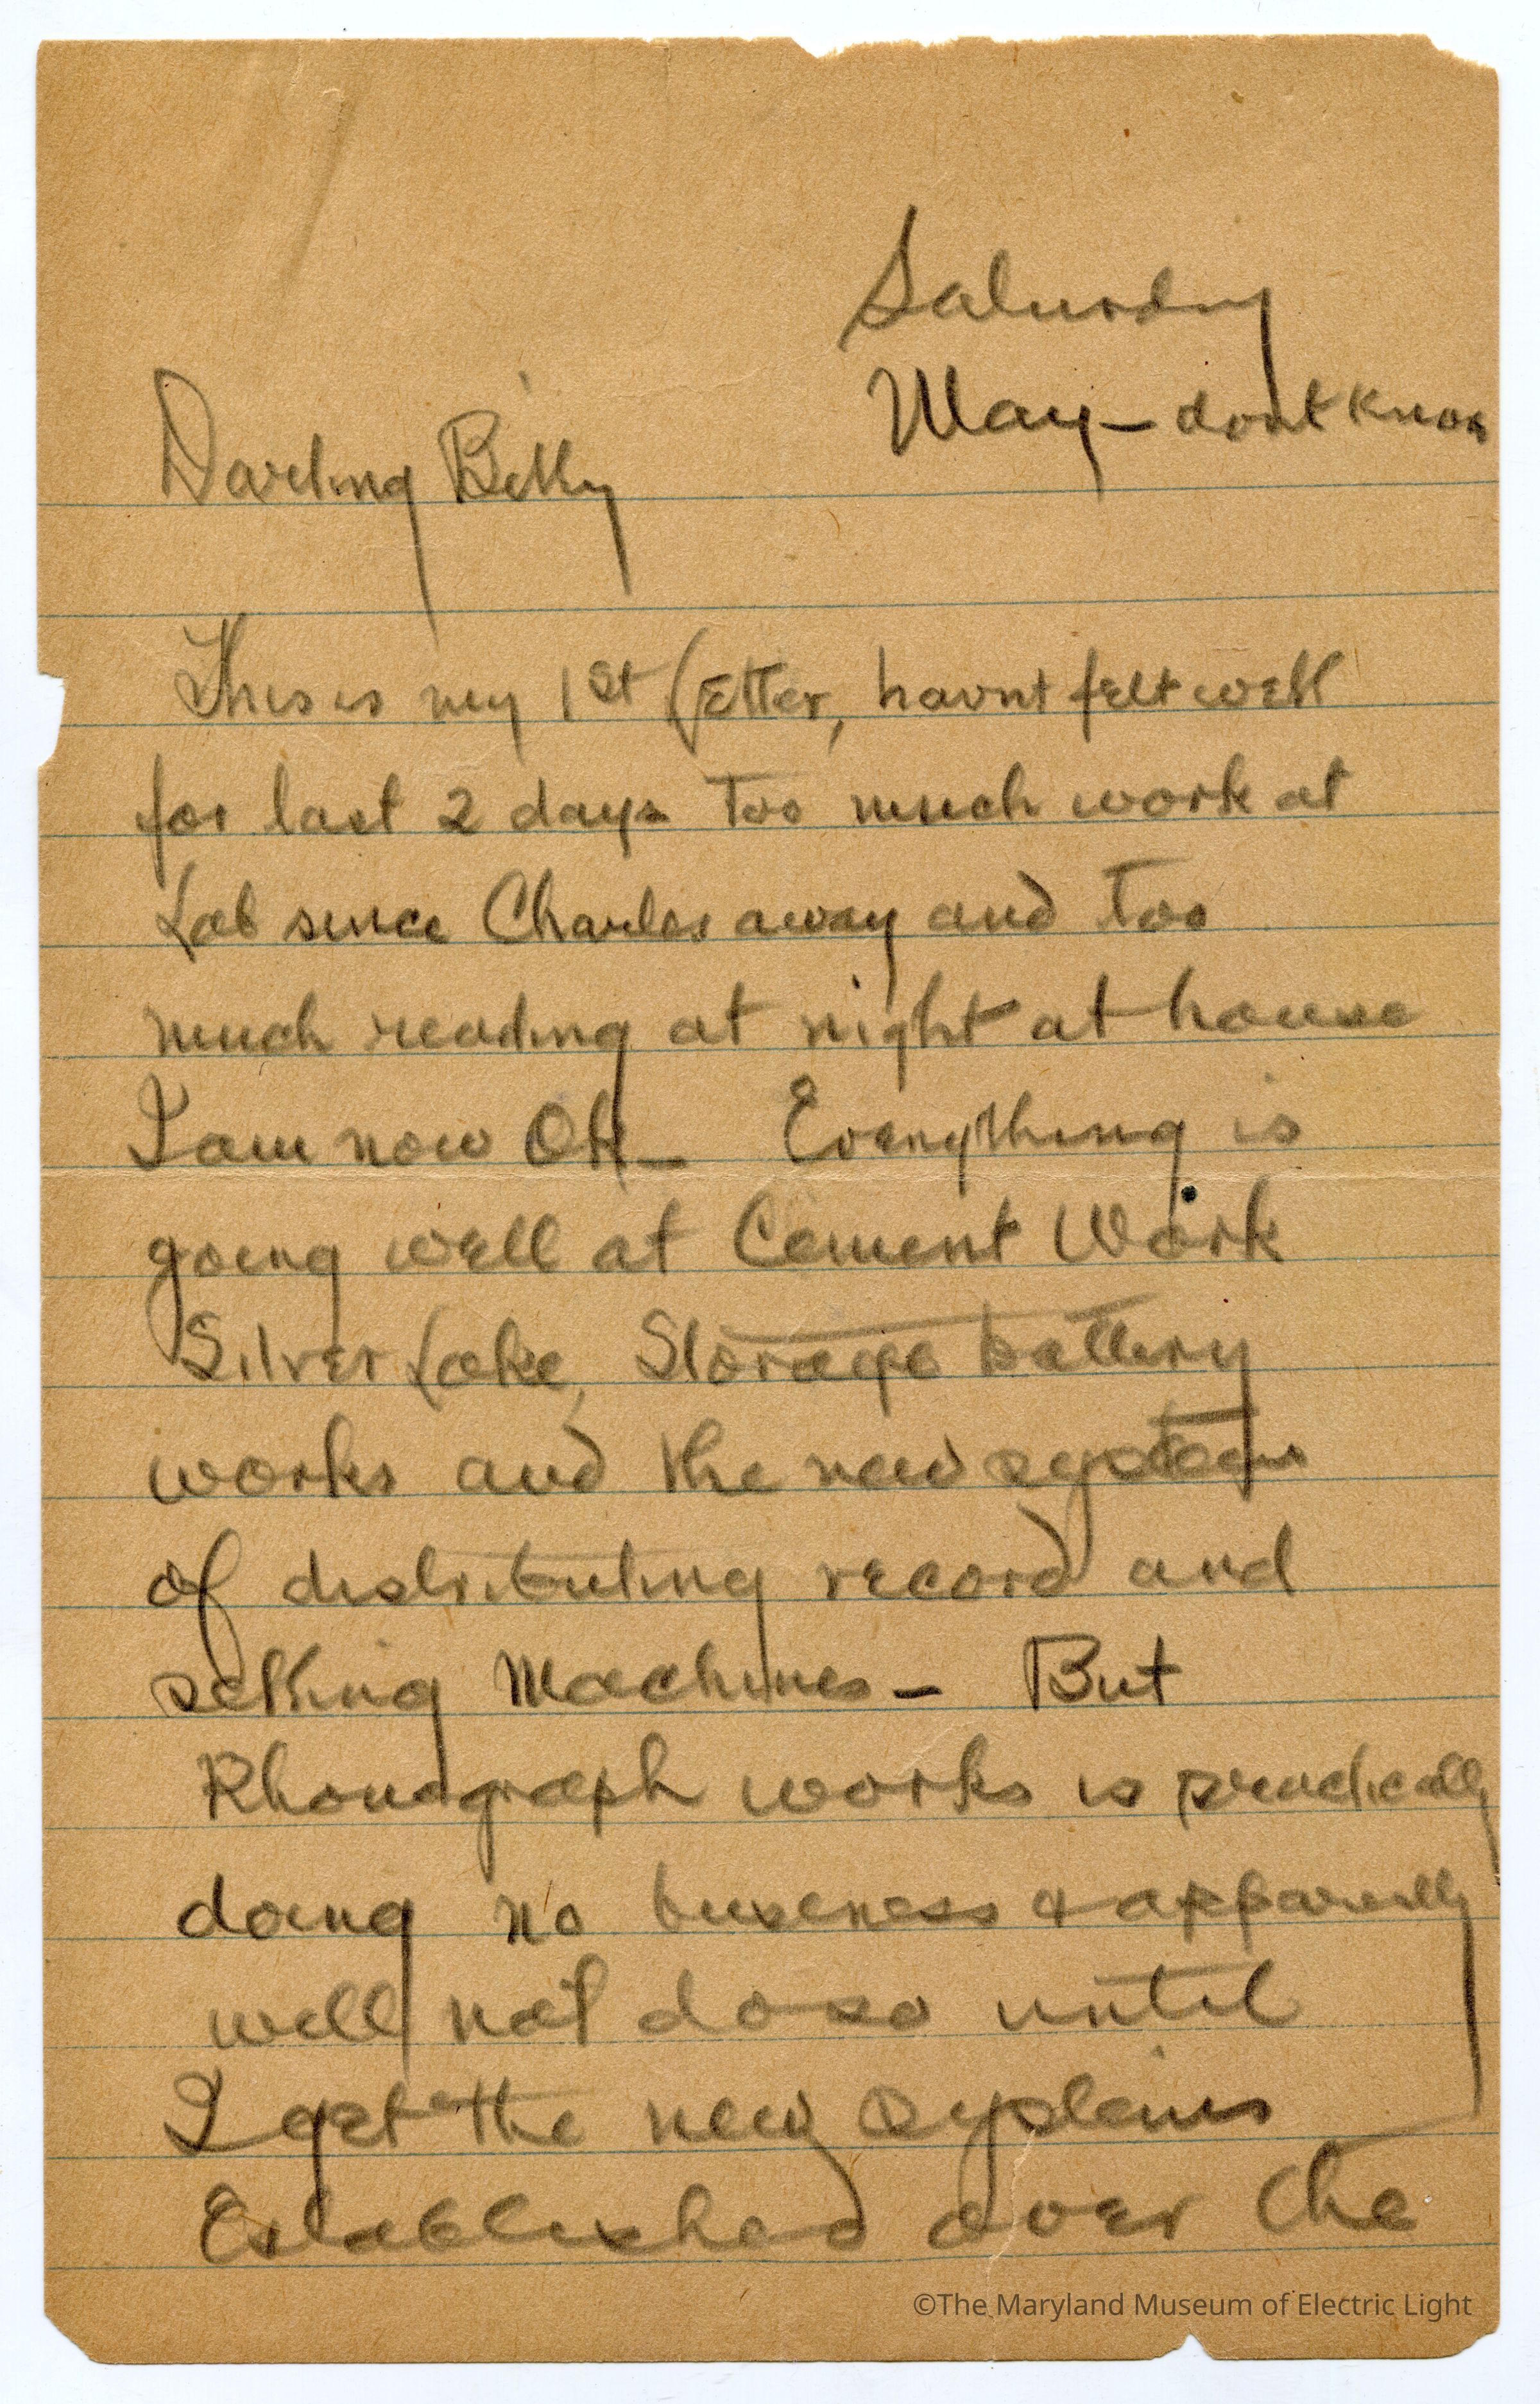 Saturday
May - dont know
Darling Billy
This is my 1st Letter, havnt felt well
for last 2 days Too much work at
Lab since Charles away and Too
much reading at night at house
I am now OK - Everything is
going well at Cement Work
Silver Lake, Storage battery
works and the new system
of distributing record and
selling Machines - But
Phonograph works is practically
doing no business & apparently
will not do so until
I get the new systems
Established over the
©The Maryland Museum of Electric Light